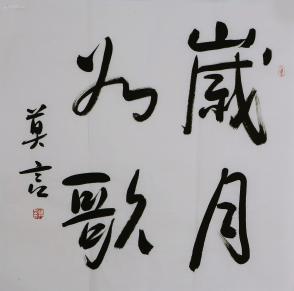 歲月
如歌
莫言